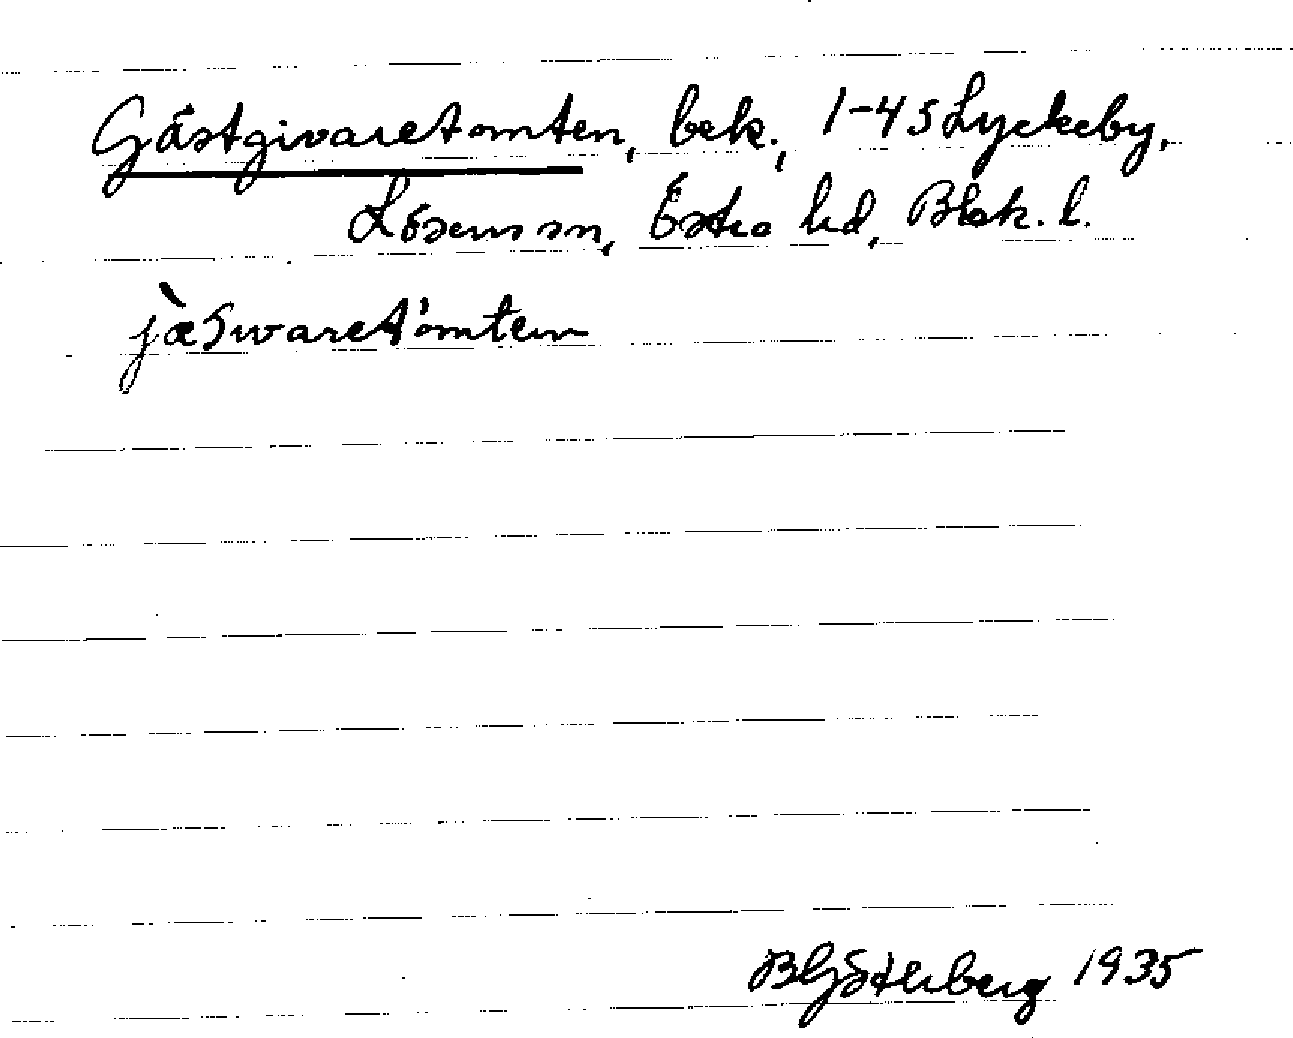 Gästgivaretomten, bek., 1-45 Lyckeby,
Lösens sn, Östra hd, Blek. l.
jæ̀sivaret'omten
BGöterberg 1935